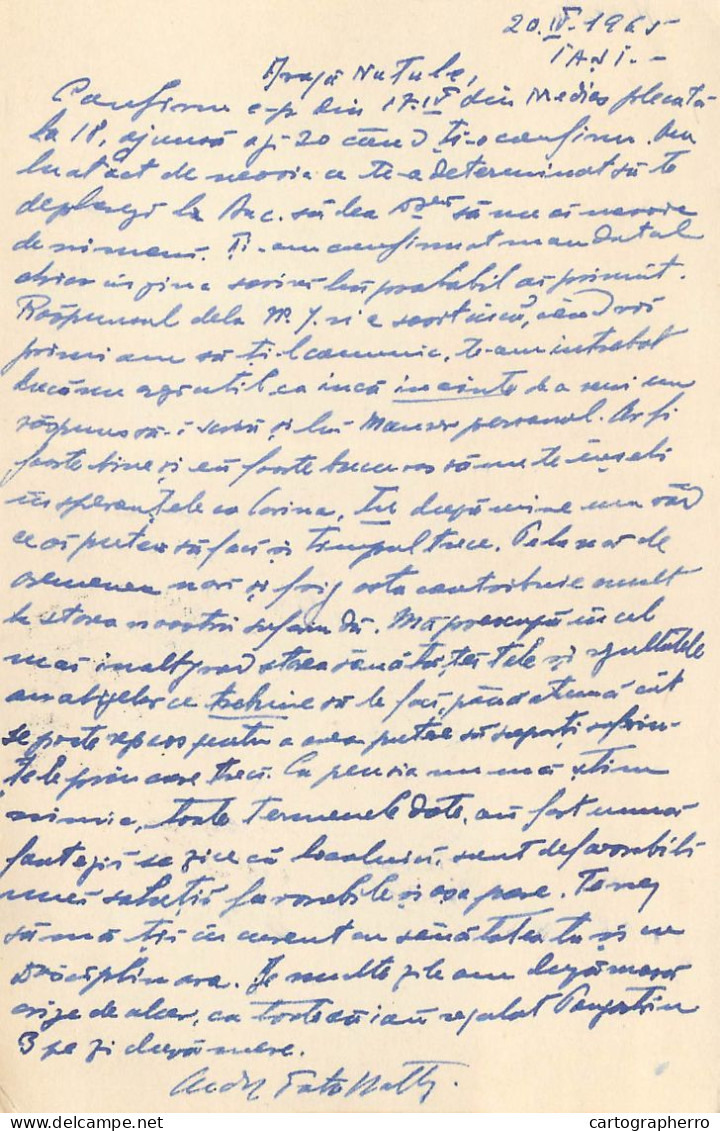 20.IV.1965
IAȘI.-
Dragă Nutule,
Confirm c-p din 17.IV din Mediaș plecată
la 18, ajunsă azi 20 când ți-o confirm. Am
luat act de nevoia ce te-a determinat să te
deplasezi la Buc. să dea să nu ai nevoie
de nimeni. Ți-am confirmat mandatul
chiar în ziua sosirii lui probabil ai primit.
Răspunsul dela M. J. ni e sosit încă, când voi
primi am să ți-l comunic, te-am întrebat
dacă nu e util ca încă înainte de a veni un
răspuns să-i scrii și lui personal. Ar fi
foarte bine și eu foarte bucuros să nu te înșeli
în speranțele cu Corina, tu după mine nu văd
ce ai putea să faci și timpul trece. Pela noi de
asemenea nori și frig asta contribuie mult
la starea noastră Mă preocupă în cel
mai înalt grad starea sănătății tale și rezultatele
analizelor ce trebuie să le faci, până atunci cât
se poate repaos pentru a avea putere să suporți suferin-
țele prin care treci. Cu pensia nu mai știm
nimic, toate termenele date, au fost numai
fantezii se zice că sunt defavorabili
unei soluții favorabile și așa pare. Te rog
să mă ții în curent cu sănătatea ta și cu
disciplinara. De multe zile am după masă
crize de ulcer, cu toate că iau regulat
3 pe zi după mese.
Tata
cartographerro